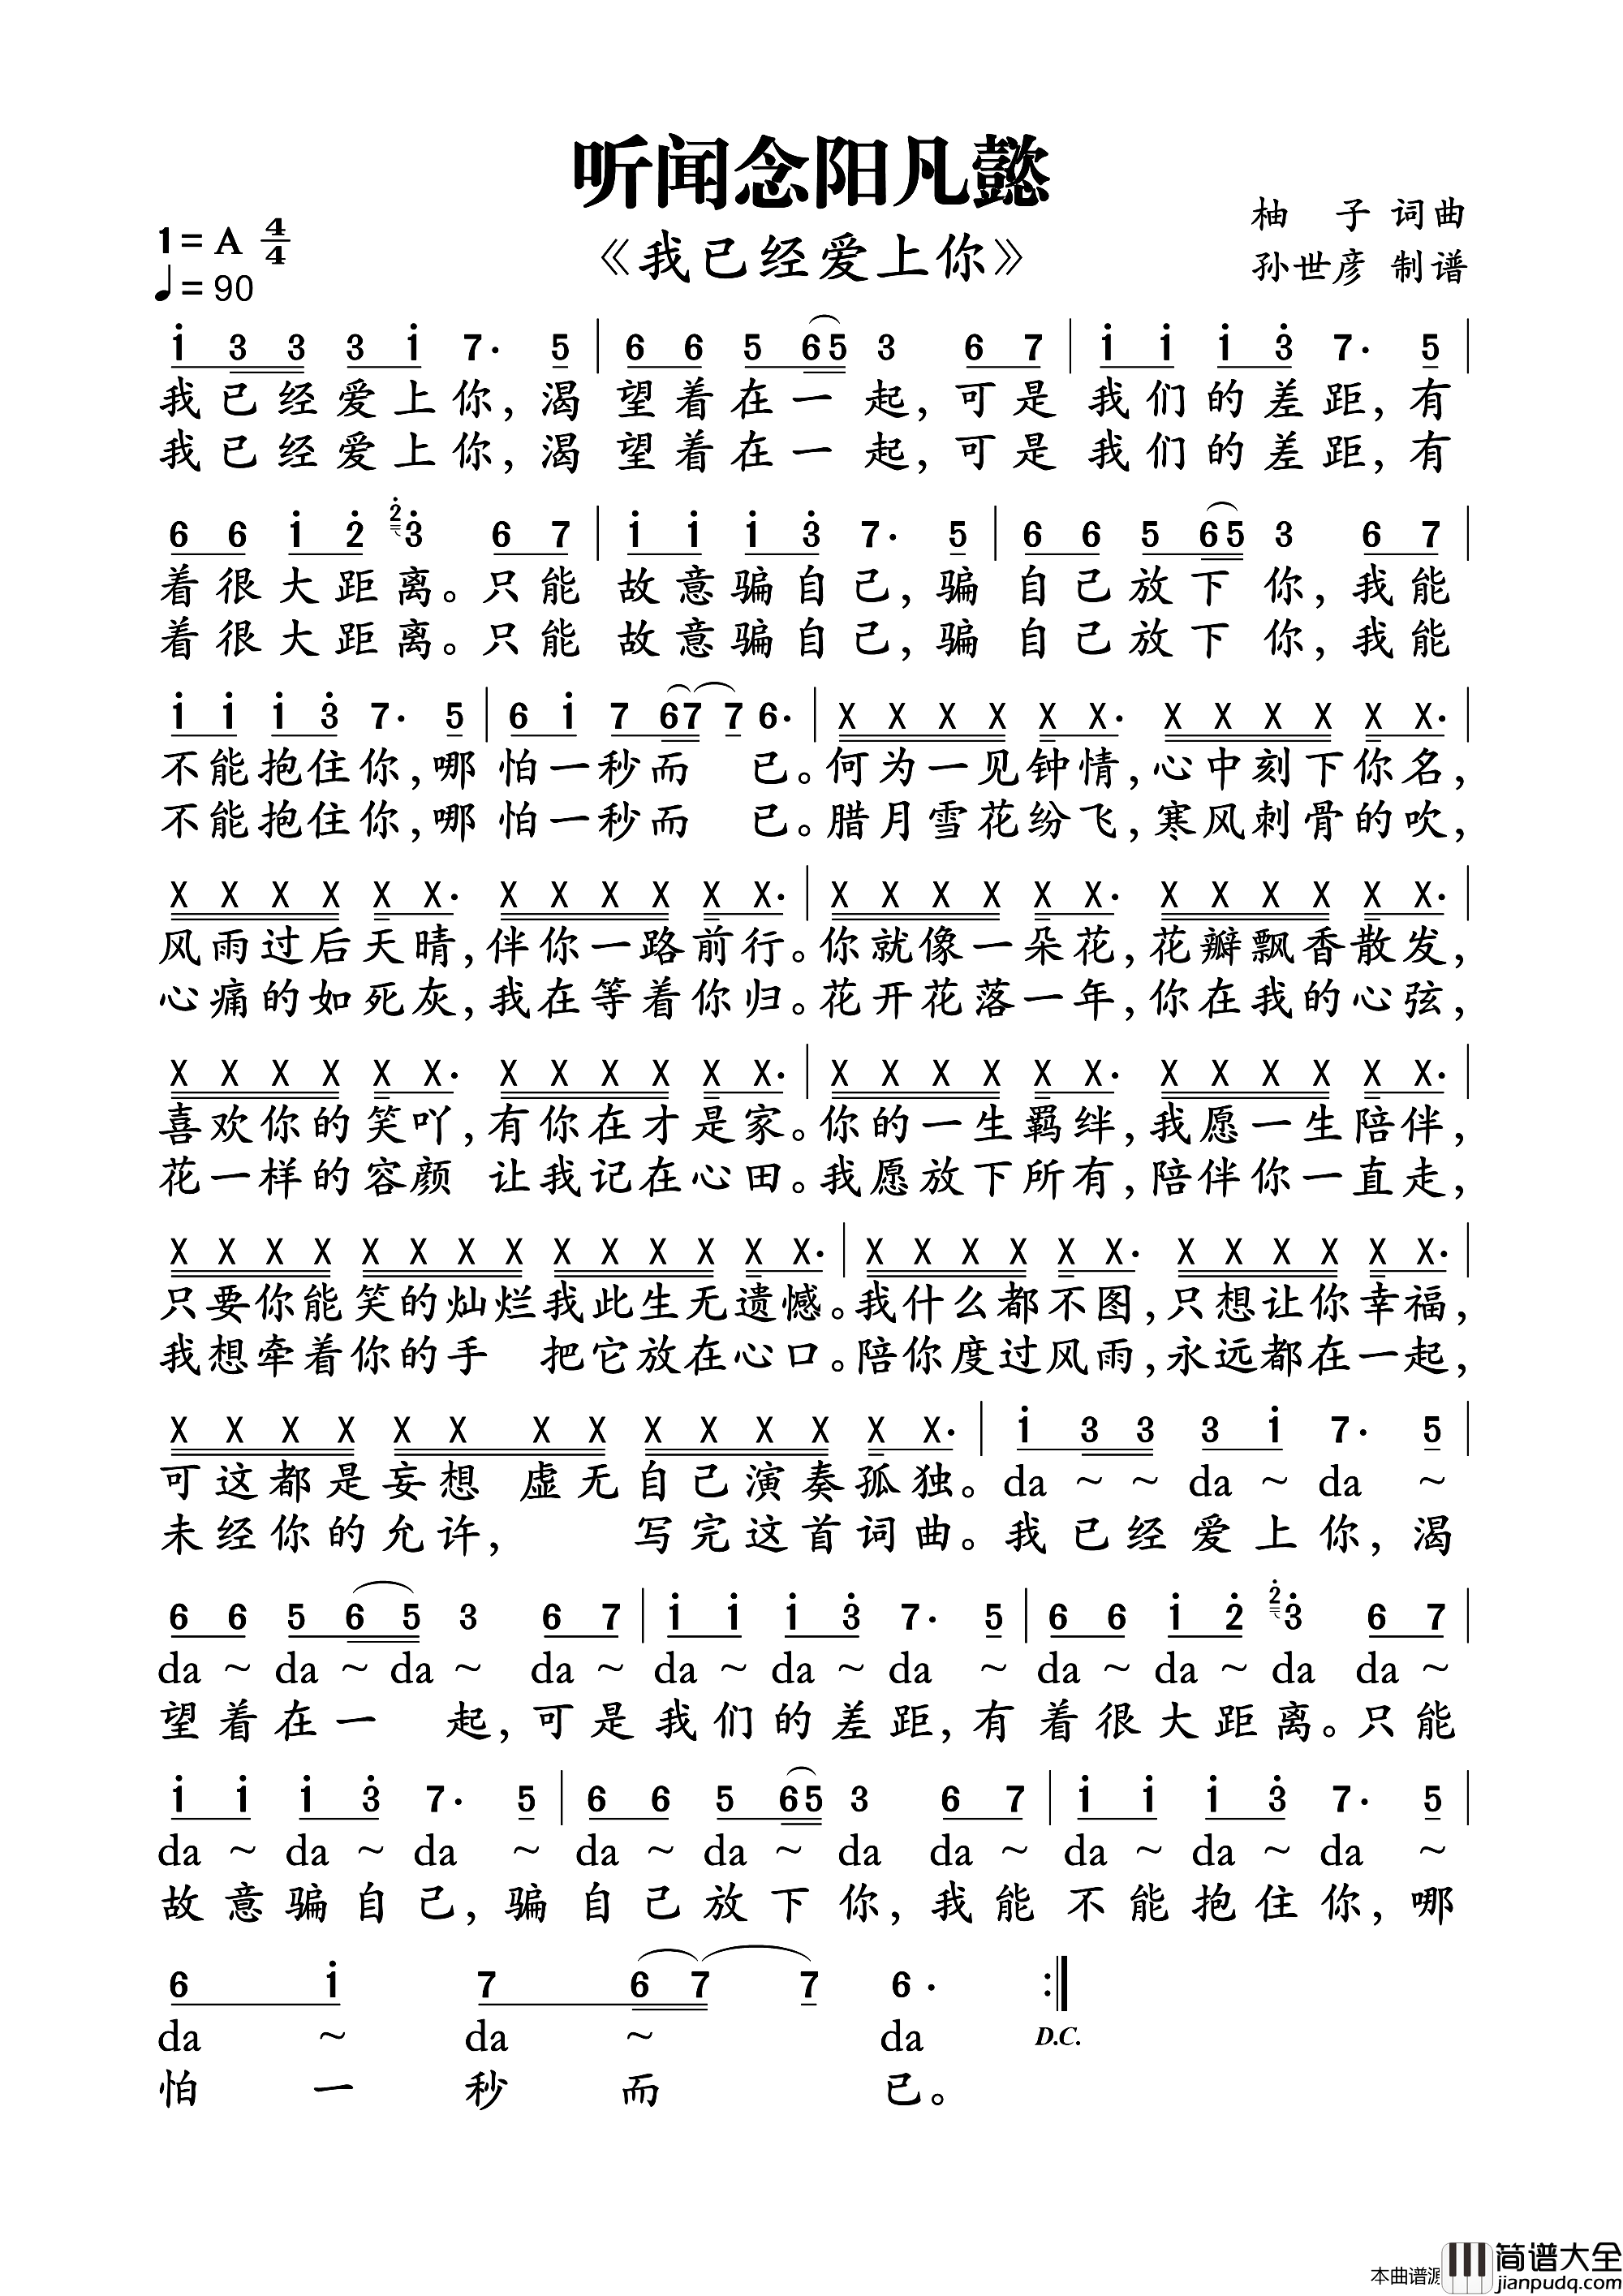 听闻念阳凡懿
1=A 4/4
柚 子 词曲
《我已经爱上你》
♩=90
孙世彦 制谱
i 3 3 3 i 7· 5 | 6 6 5 65 3 6 7 | i i i 3̇ 7· 5 |
我已经爱上你,渴 望着在一起,可是 我们的差距,有
我已经爱上你,渴 望着在一起,可是 我们的差距,有
6 6 i 2̇ 2̇3̇ 6 7 | i i i 3̇ 7· 5 | 6 6 5 65 3 6 7 |
着很大距离。只能 故意骗自己,骗 自己放下你,我能
着很大距离。只能 故意骗自己,骗 自己放下你,我能
i i i 3̇ 7· 5 | 6 i 7 67 7 6· | X X X X X X· X X X X X X· |
不能抱住你,哪 怕一秒而 已。何为一见钟情,心中刻下你名,
不能抱住你,哪 怕一秒而 已。腊月雪花纷飞,寒风刺骨的吹,
X X X X X X· X X X X X X· | X X X X X X· X X X X X X· |
风雨过后天晴,伴你一路前行。你就像一朵花,花瓣飘香散发,
心痛的如死灰,我在等着你归。花开花落一年,你在我的心弦,
X X X X X X· X X X X X X· | X X X X X X· X X X X X X· |
喜欢你的笑吖,有你在才是家。你的一生羁绊,我愿一生陪伴,
花一样的容颜 让我记在心田。我愿放下所有,陪伴你一直走,
X X X X X X X X X X X X X X· | X X X X X X· X X X X X X· |
只要你能笑的灿烂我此生无遗憾。我什么都不图,只想让你幸福,
我想牵着你的手 把它放在心口。陪你度过风雨,永远都在一起,
X X X X X X X X X X X X X X· | i 3 3 3 i 7· 5 |
可这都是妄想 虚无自己演奏孤独。da ~ ~ da ~ da ~
未经你的允许, 写完这首词曲。我已经爱上你,渴
6 6 5 6 5 3 6 7 | i i i 3̇ 7· 5 | 6 6 i 2̇ 2̇3̇ 6 7 |
da ~ da ~ da ~ da ~ da ~ da ~ da ~ da ~ da ~ da da ~
望着在一 起,可是我们的差距,有着很大距离。只能
i i i 3̇ 7· 5 | 6 6 5 65 3 6 7 | i i i 3̇ 7· 5 |
da ~ da ~ da ~ da ~ da ~ da da ~ da ~ da ~ da ~
故意骗自己,骗 自己放下你,我能 不能抱住你,哪
6 i 7 6 7 7 6· :‖
da ~ da ~ da D.C.
怕一秒而 已。
本曲谱源
简谱大全
jianpudq.com